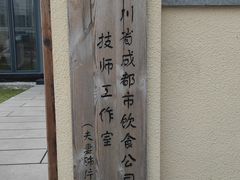 川省成都市饮食公司
技师工作室
（夫妻肺片